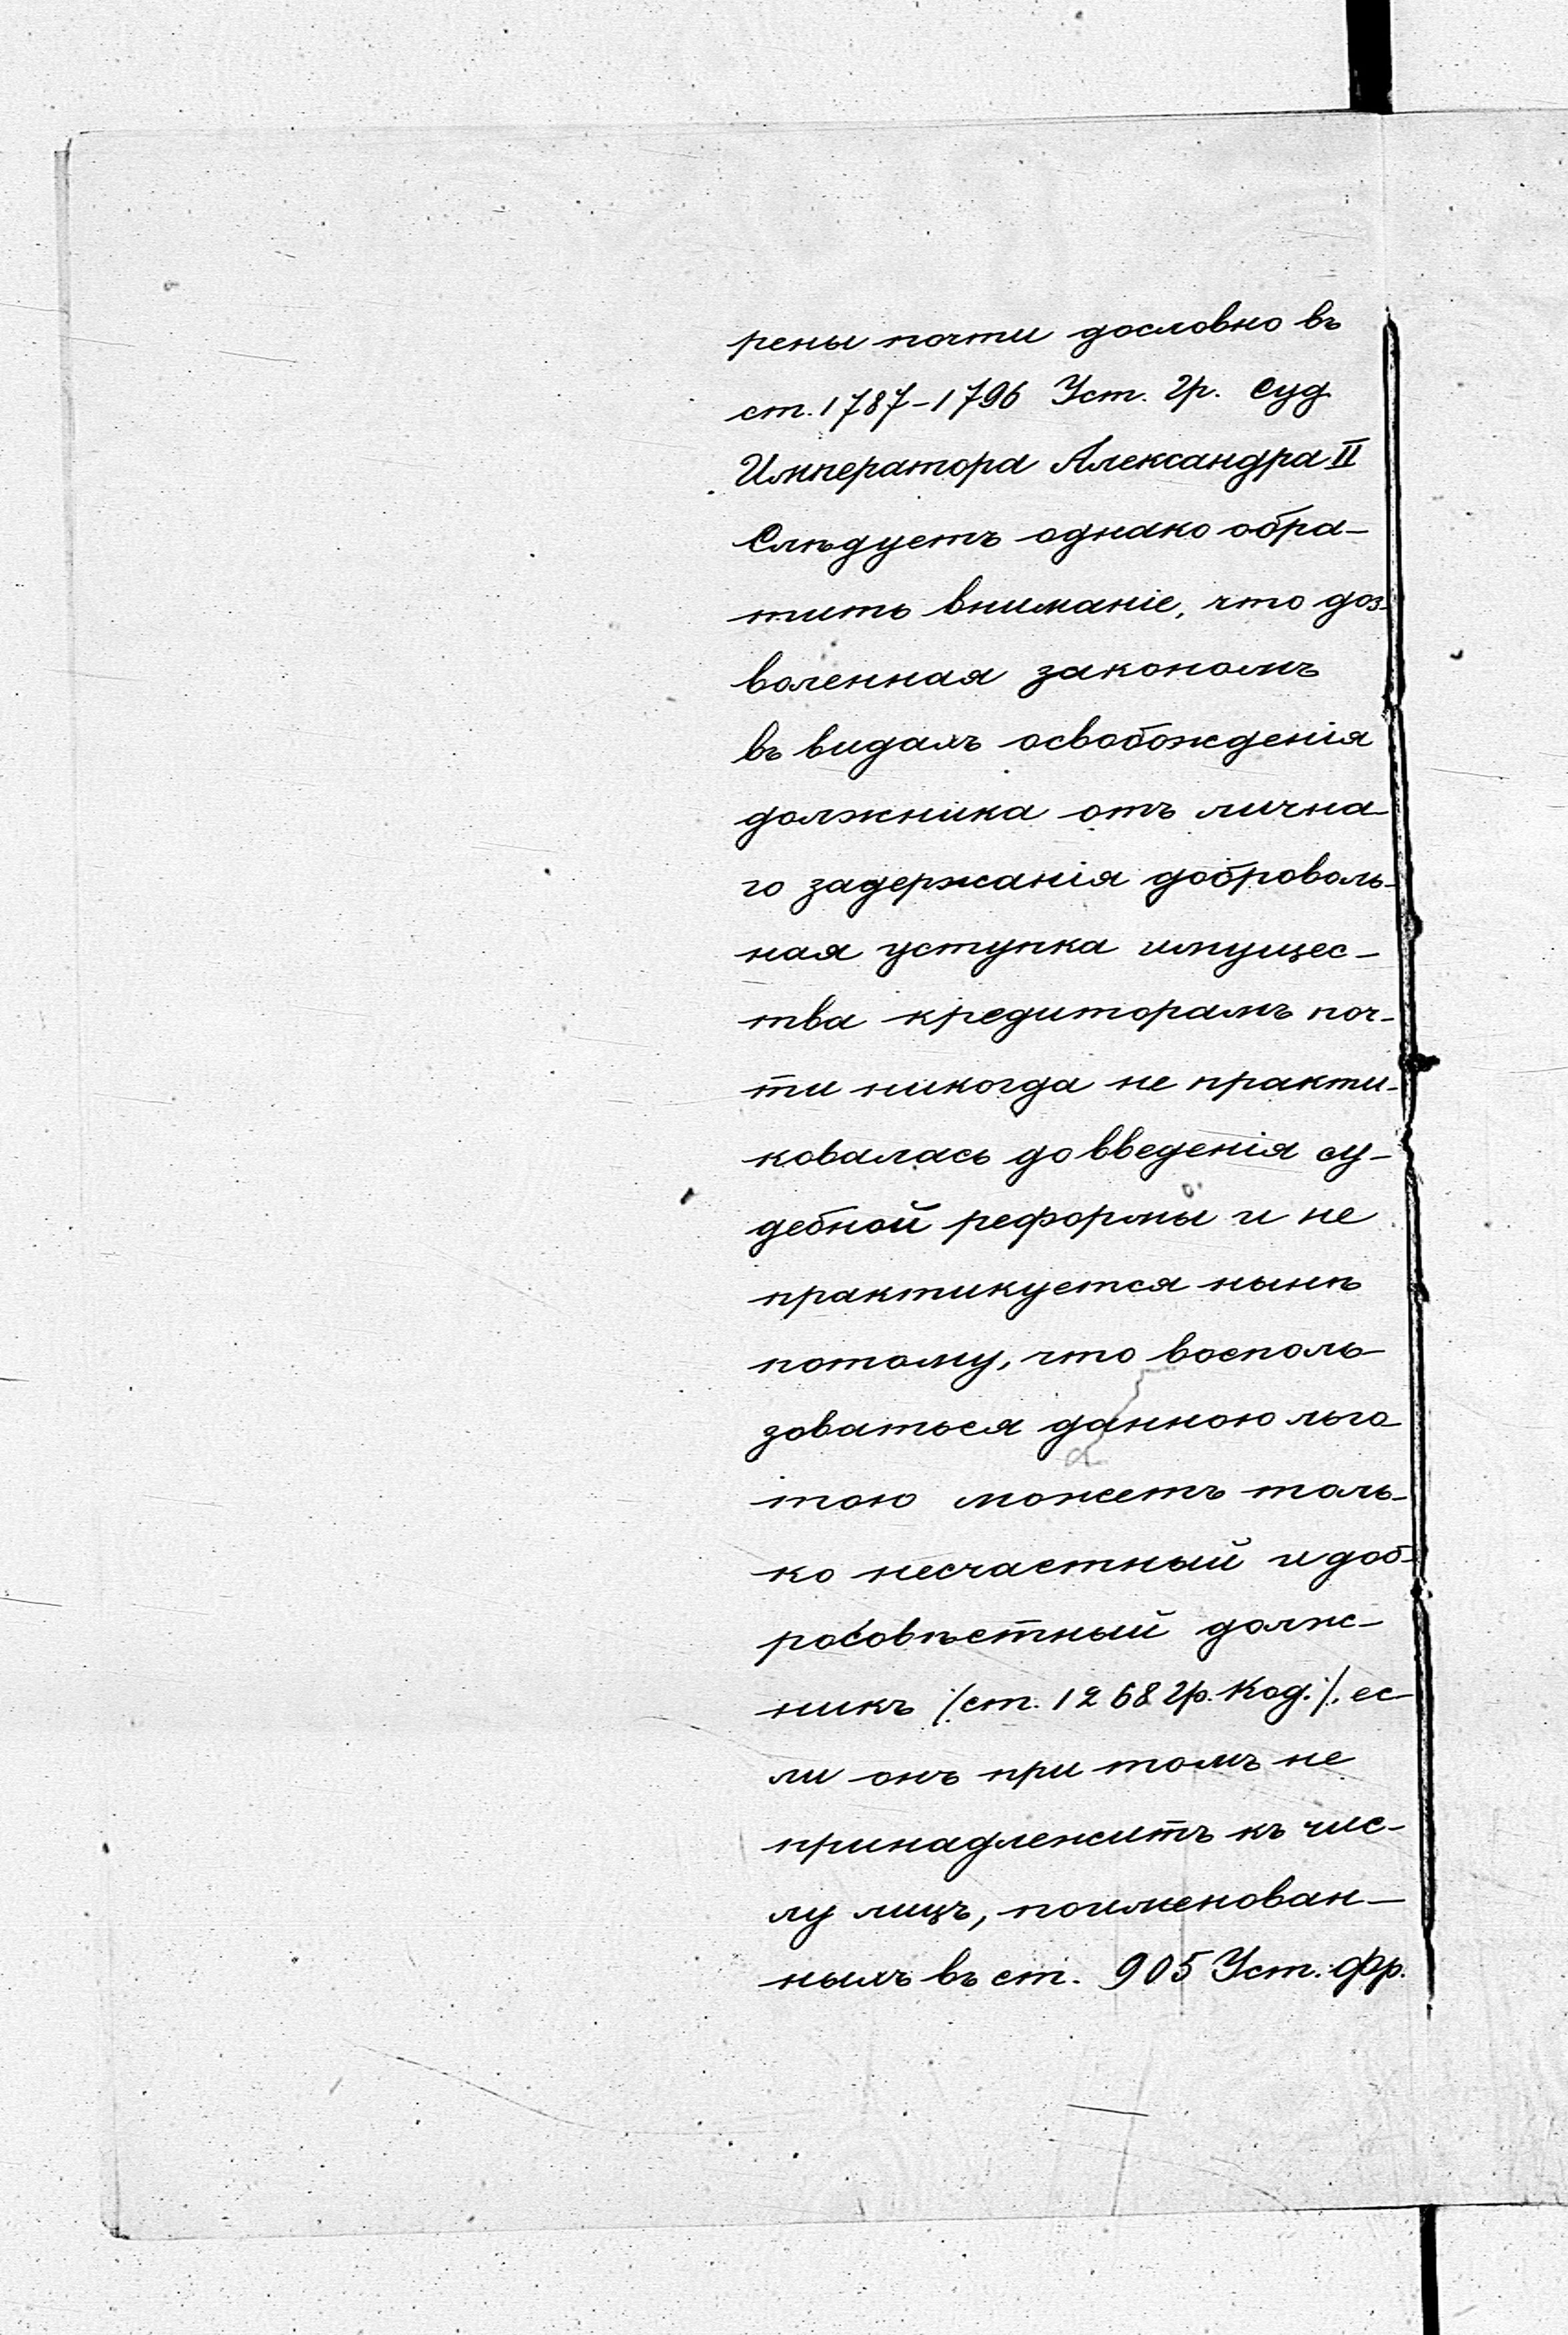 рены почти дословно въ
ст. 1787-1796 Уст. Гр. Суд.
Императора Александра II
Слѣдуетъ однако обра-
тить вниманіе, что доз-
воленная закономъ
въ видахъ освобожденія
должника отъ лична-
го задержанія доброволь-
ная уступка имущес-
тва кредиторамъ поч-
ти никогда не практи-
ковалась до введенія су-
дебной реформы и не
практикуется нынѣ
потому, что восполь-
зоваться данною льго
тою можетъ толь-
ко несчастный и доб-
росовѣстный долж-
никъ /:ст. 1268 Гр. Код.:/, ес-
ли онъ при томъ не
принадлежитъ къ чис-
лу лицъ, поименован-
ныхъ въ ст. 905 Уст. Фр.